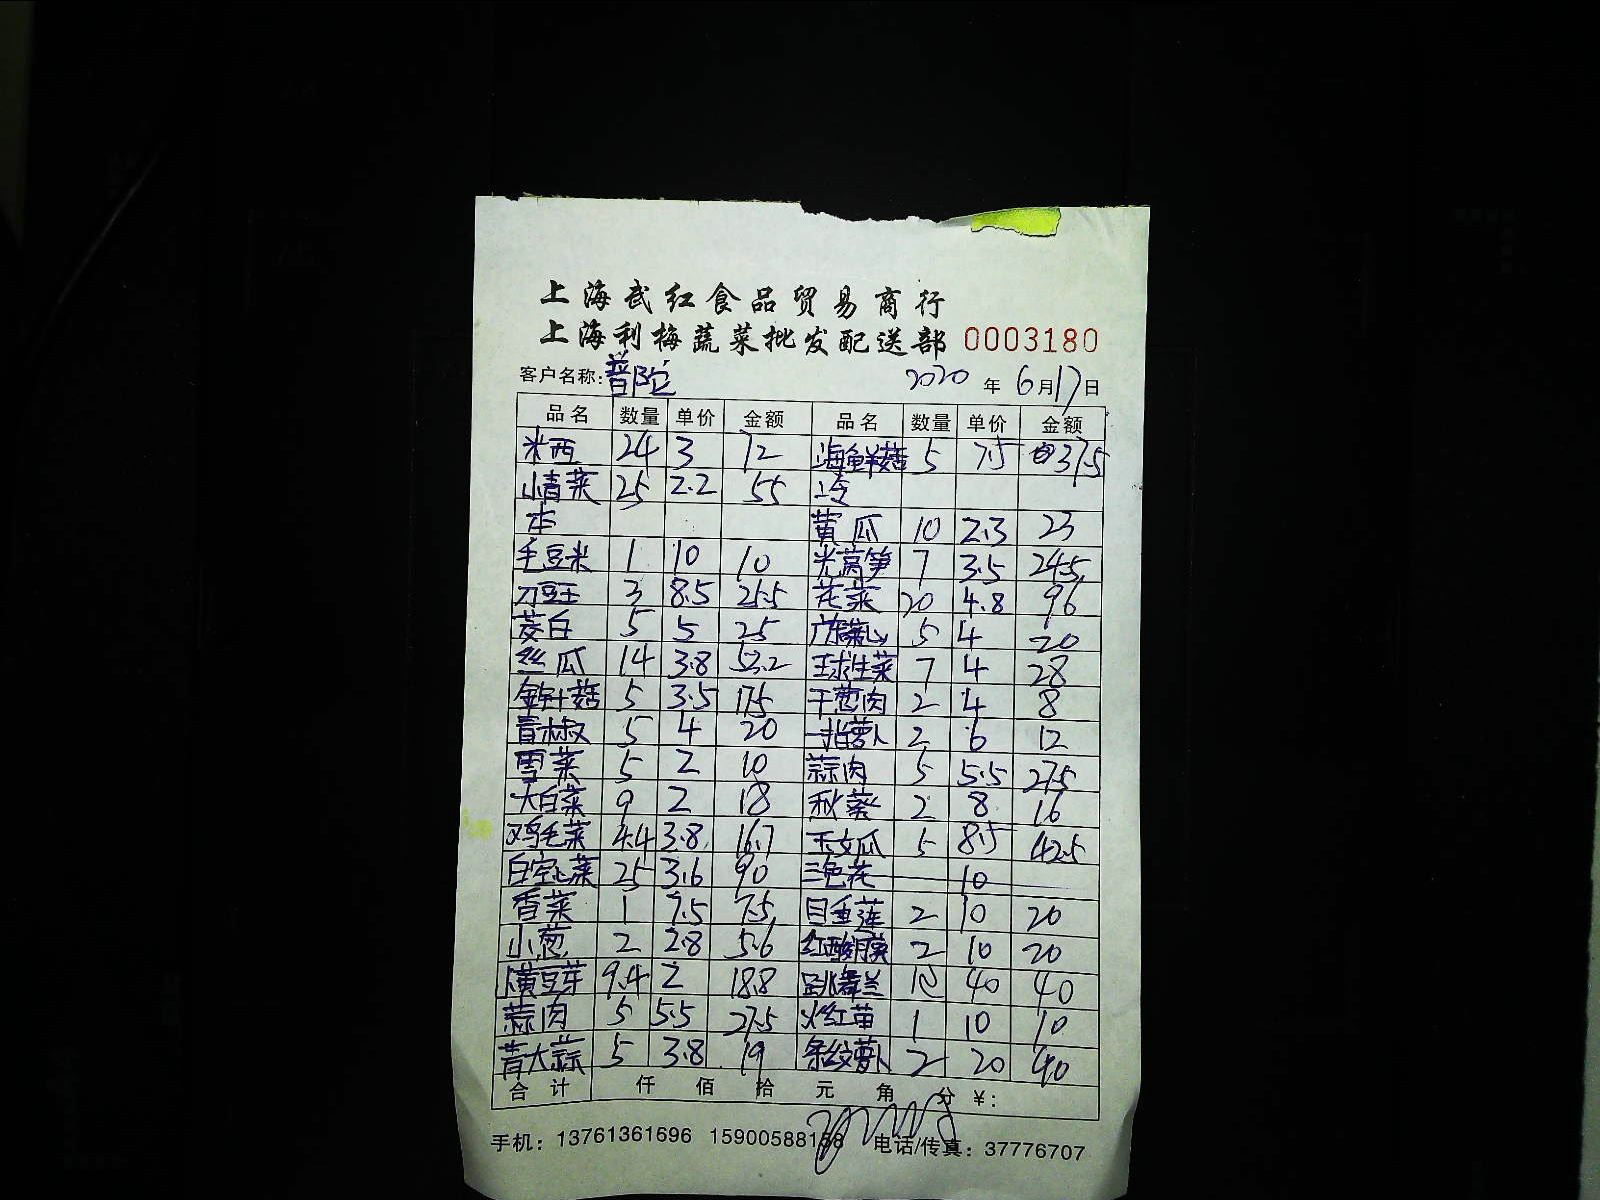 上海武红食品贸易商行
上海利梅蔬菜批发配送部 0003180
客户名称: 普陀 2020 年 6 月 17 日
品名 数量 单价 金额 品名 数量 单价 金额
米西 24 3 72 海鲜菇 5 7.5 37.5
小青菜 25 2.2 55
本 黄瓜 10 2.3 23
毛豆米 1 10 10 光莴笋 7 3.5 24.5
刀豆 3 8.5 25.5 花菜 20 4.8 96
茭白 5 5 25 广东菜心 5 4 20
丝瓜 14 3.8 53.2 球生菜 7 4 28
金针菇 5 3.5 17.5 干葱肉 2 4 8
青椒 5 4 20 一指萝卜 2 6 12
雪菜 5 2 10 蒜肉 5 5.5 27.5
大白菜 9 2 18 秋葵 2 8 16
鸡毛菜 4.4 3.8 16.7 玉女瓜 5 8.5 42.5
白空心菜 25 3.6 90 三色花 10
香菜 1 7.5 7.5 目垂莲 2 10 20
小葱 2 2.8 5.6 红酸膜 2 10 20
黄豆芽 9.4 2 18.8 跳舞兰 40 40
蒜肉 5 5.5 27.5 火红苗 1 10 10
青大蒜 5 3.8 19 条纹萝卜 2 20 40
合计 仟 佰 拾 元 角 分 ¥:
手机: 13761361696 15900588138 电话/传真: 37776707